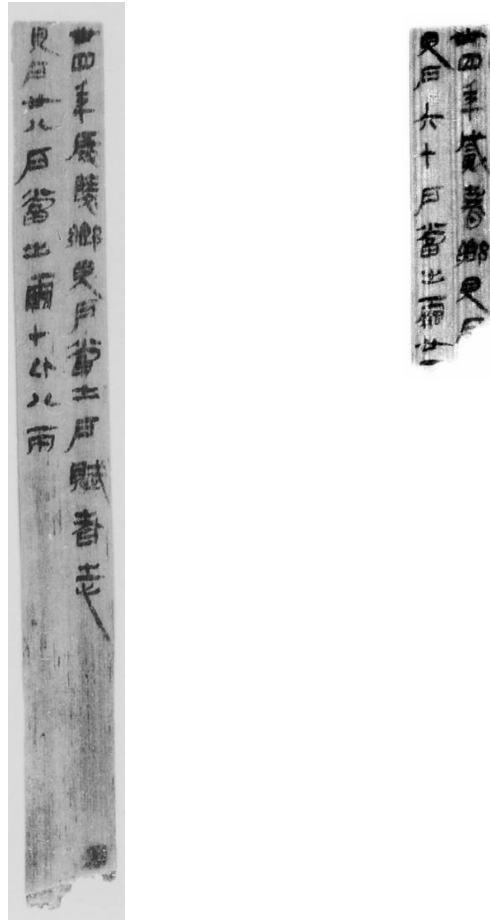 卅四年啟陵鄉見戶當出戶賦者志
見戶廿八戶當出繭十斤八兩
卅四年貳春鄉見戶
見戶六十戶當出繭廿